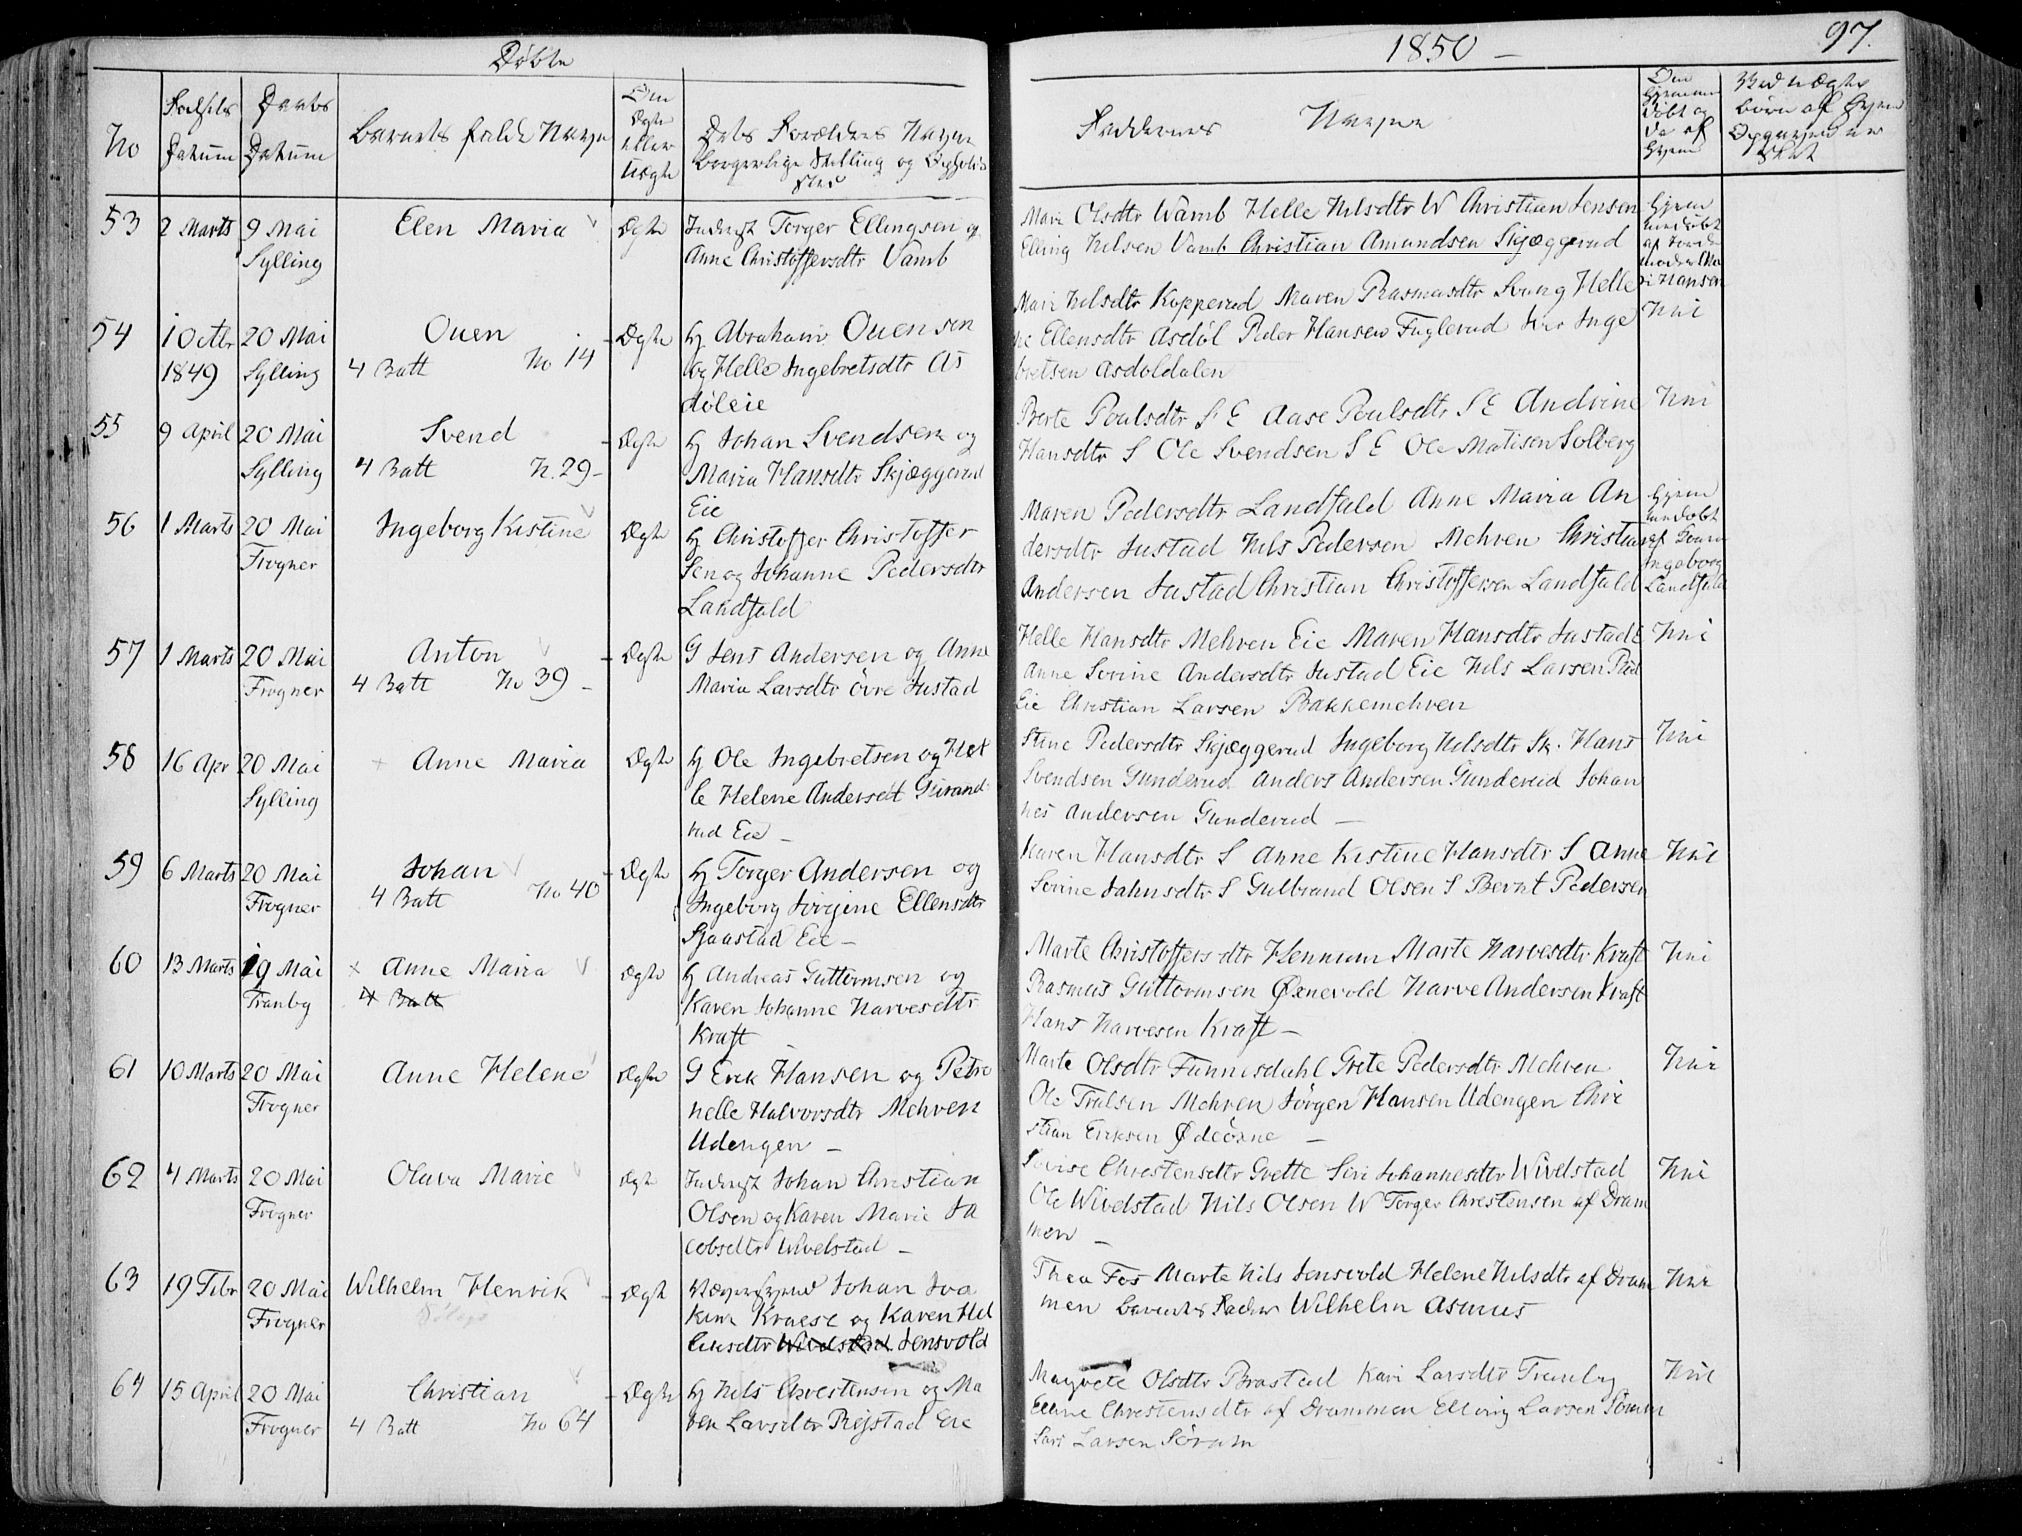 Döbte
1850 –
97.
No
Födsels Datum
Daabs Datum
Barnets fulde Navn
Om Ægte eller Uægte
Dets Forældres Navne
borgerlige Stilling og Opholds
sted
Faddernes Navne
Om Hjemmedöbt og da af hvem
53 2 Marts 9 Mai Elen Maria Ægte Inderst Torger Ellingsen og
Sylling Anne Christoffersdtr Vamb
Mari Olsdtr Wamb Helle Nilsdtr W Christian Jensen
Elling Nilsen Vamb Christian Amundsen Skjæggerud
Hjem
af
Hansen
54 1 Octbr 20 Mai Ouen Ægte H Abraham Ouensen
1849 Sylling 4 Batt No 14 og Helle Ingebretsdtr As
döleie
Mari Nilsdtr Kopperud Maren Rasmusdtr Svang Helle
ne Ellensdtr Asdöl Peder Hansen Fuglerud Iver Inge
bretsen Asdöldalen
Nei
55 9 April 20 Mai Svend Ægte H Johan Svendsen og
Sylling 4 Batt N. 29 – Maria Hansdtr Skjæggerud
Eie
Berte Poulsdtr S E Aase Poulsdtr S E Andrine
Hansdtr S Ole Svendsen S E Ole Matisen Solberg
Nei
56 1 Marts 20 Mai Ingeborg Kistine Ægte H Christoffer Christoffer
Frogner sen og Johanne Pedersdtr
Landfald
Maren Pedersdtr Landfald Anne Maria An
dersdtr Justad Nils Pedersen Mehren Christian
Andersen Justad Christian Christoffersen Landfald
Hjem
af
Ingeborg
Landfald
57 1 Marts 20 Mai Anton Ægte G Jens Andersen og Anne
Frogner 4 Batt No 39 – Maria Larsdtr övre Justad
Helle Hansdtr Mehren Eie Maren Hansdtr Justad E
Anne Sorine Andersdtr Justad Eie Nils Larsen
Eie Christian Larsen Bakkemehren
Nei
58 16 Apr 20 Mai Anne Maria Ægte H Ole Ingebretsen og Hel
Sylling le Helene Andersdt
rud Eie –
Stine Pedersdtr Skjæggerud Ingeborg Nilsdtr Sk. Hans
Svendsen Gunderud Anders Andersen Gunderud Johan
nes Andersen Gunderud –
Nei
59 6 Marts 20 Mai Johan Ægte H Torger Andersen og
Frogner 4 Batt No 40 Ingeborg Jörgine Ellensdtr
Sjaastad Eie –
Karen Hansdtr S Anne Kistine Hansdtr S Anne
Sorine Jahnsdtr S Gulbrand Olsen S Bernt Pedersen
Nei
60 13 Marts 19 Mai Anne Maria Ægte H Andreas Guttormsen og
Tranby 4 Batt Karen Johanne Narvesdtr
Kraft
Marte Christoffersdtr Hennum Marte Narvesdtr Kraft
Rasmus Guttormsen Øxnevold Narve Andersen Kraft
Hans Narvesen Kraft –
Nei
61 10 Marts 20 Mai Anne Helene Ægte G Erik Hansen og Petro
Frogner nelle Halvorsdtr Mehren
Udengen –
Marte Olsdtr Funnesdahl Grete Pedersdtr Mehren
Ole Trulsen Mehren Jörgen Hansen Udengen Chri
stian Eriksen Ødeöxne –
Nei
62 4 Marts 20 Mai Olava Marie Ægte Inderst Johan Christian
Frogner Olsen og Karen Marie Ja
cobsdtr Wivelstad –
Lovise Chrestensdtr Grette Siri Johannesdtr Wivelstad
Ole Wivelstad Nils Olsen W Torger Chrestensen af Dram
men –
Nei
63 19 Febr 20 Mai Wilhelm Henrik Ægte Johan Joa
Frogner kim Kruese og Karen Hel
lensdtr Wivelstad Jensvold
Thea Fos Marte Nils Jensvold Helene Nilsdtr af Dram
men Barnets Fader Wilhelm Asmus
Nei
64 15 April 20 Mai Christian Ægte H Nils Chrestensen og Ma
Frogner 4 Batt No 64 ren Larsdtr Rejstad Eie
Magrete Olsdtr Brastad Kari Larsdtr Tranby
Elline Chrestensdtr af Drammen Elling Larsen
Lars Larsen Söram
Nei